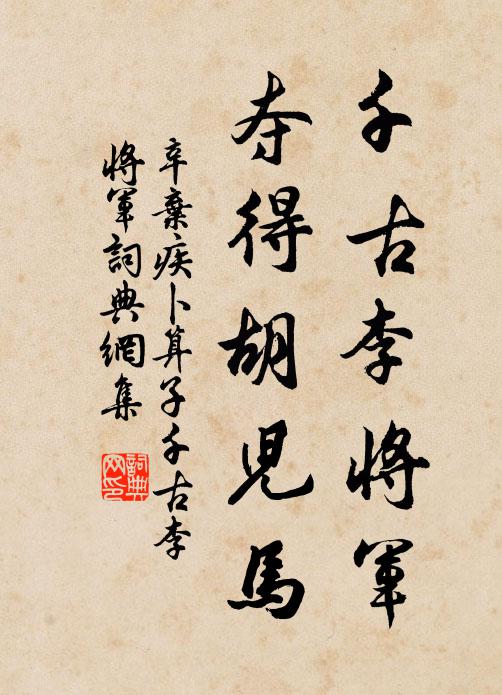 千古李將軍
夺得胡兒馬
辛棄疾卜算子千古李
將軍詞典網集
詞典
网印